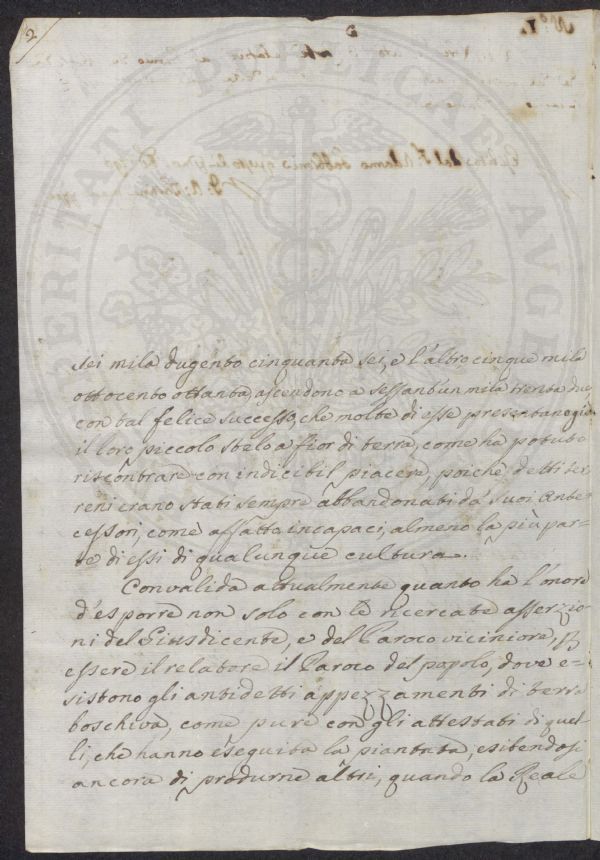 2
N.° I.
sei mila dugento cinquanta sei, e l'altro cinque mila
ottocento ottanta, ascendono a sessant'un mila trenta due,
con tal felice successo, che molte di esse presentano già
il loro piccolo stelo a fior di terra, come ha potuto
riscontrare con indicibil piacere, poichè detti ter
reni erano stati sempre abbandonati da' suoi Ante
cessori, come affatto incapaci, almeno la più par-
te di essi di qualunque cultura.
Convalida attualmente quanto ha l'onore
d'esporre non solo con le ricercate asserzio-
ni del Giusdicente, e del Paroco viciniore, p
essere il relatore il Paroco del popolo, dove e-
sistono gli antidetti appezzamenti di terra
boschiva, come pure con gli attestati di quel-
li, che hanno eseguita la piantata, esibendosi
ancora di produrne altri, quando la Reale
PERITATI PUBLICAE AUGE